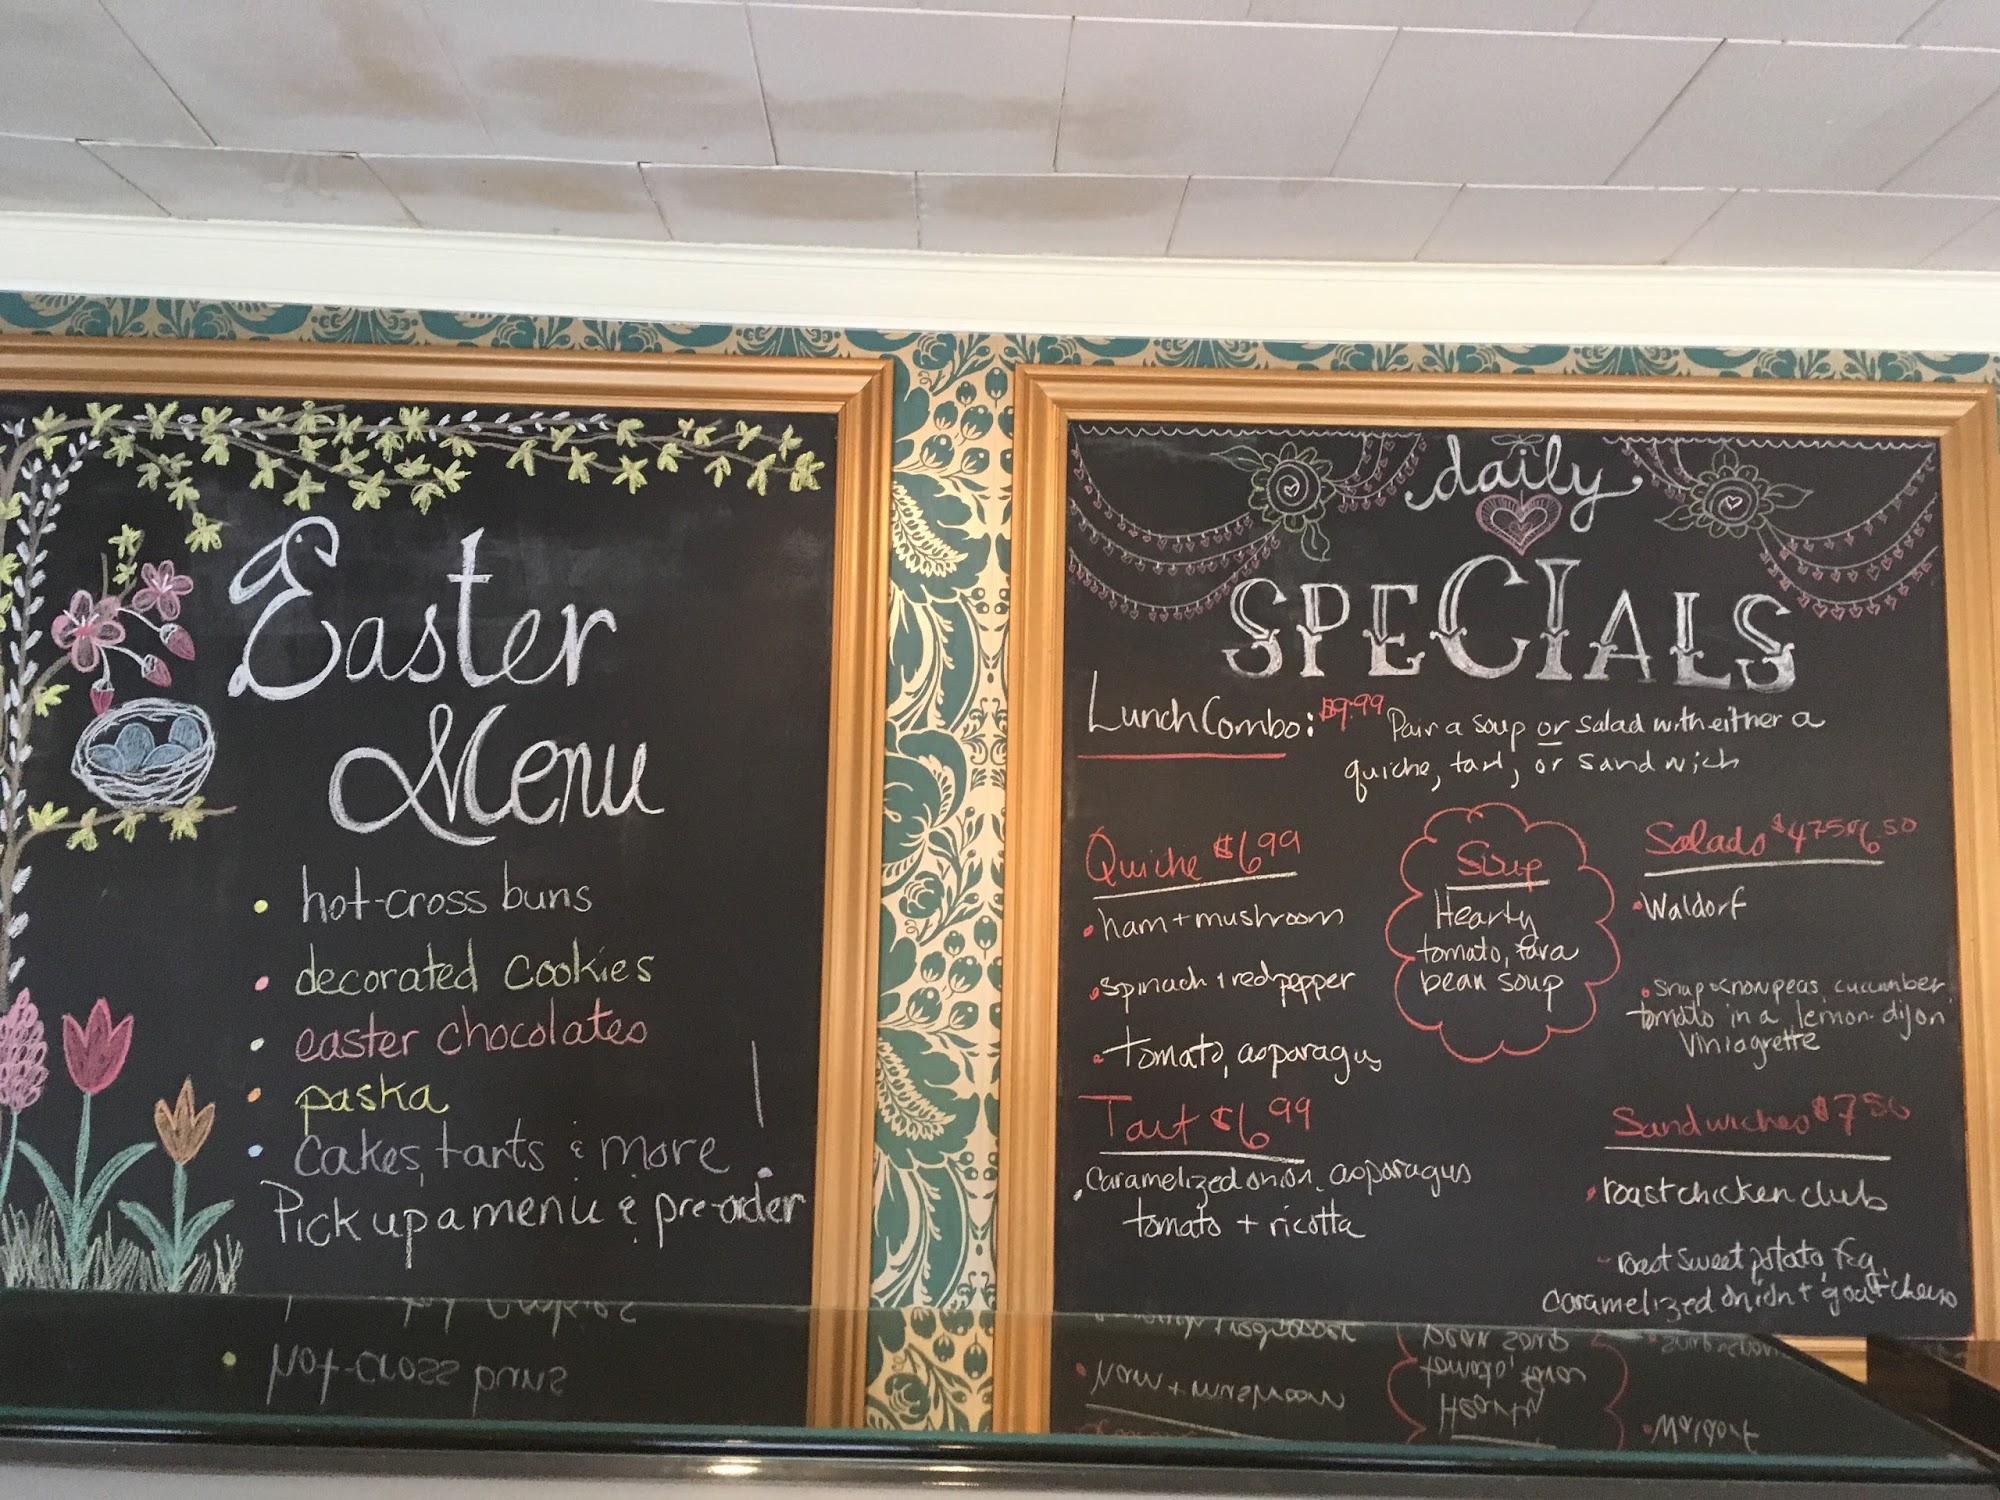 Easter
Menu
hot-cross buns
decorated cookies
easter chocolates
paska
cakes, tarts & more
Pick up a menu & pre-order
daily
SPECIALS
Lunch Combo: $9.99 Pair a soup or salad with either a
quiche, tart, or sandwich
Quiche $6.99
• ham + mushroom
• spinach + red pepper
• tomato, asparagus
Tart $6.99
• Caramelized onion, asparagus
tomato + ricotta
Soup
Hearty
tomato, fava
bean soup
Salads $4.75
6.50
• Waldorf
• Snap + snow peas, cucumber
tomato in a lemon-dijon
Viniagrette
Sandwiches $7.50
• roast chicken club
- roast sweet potato, fig,
caramelized onion + goat